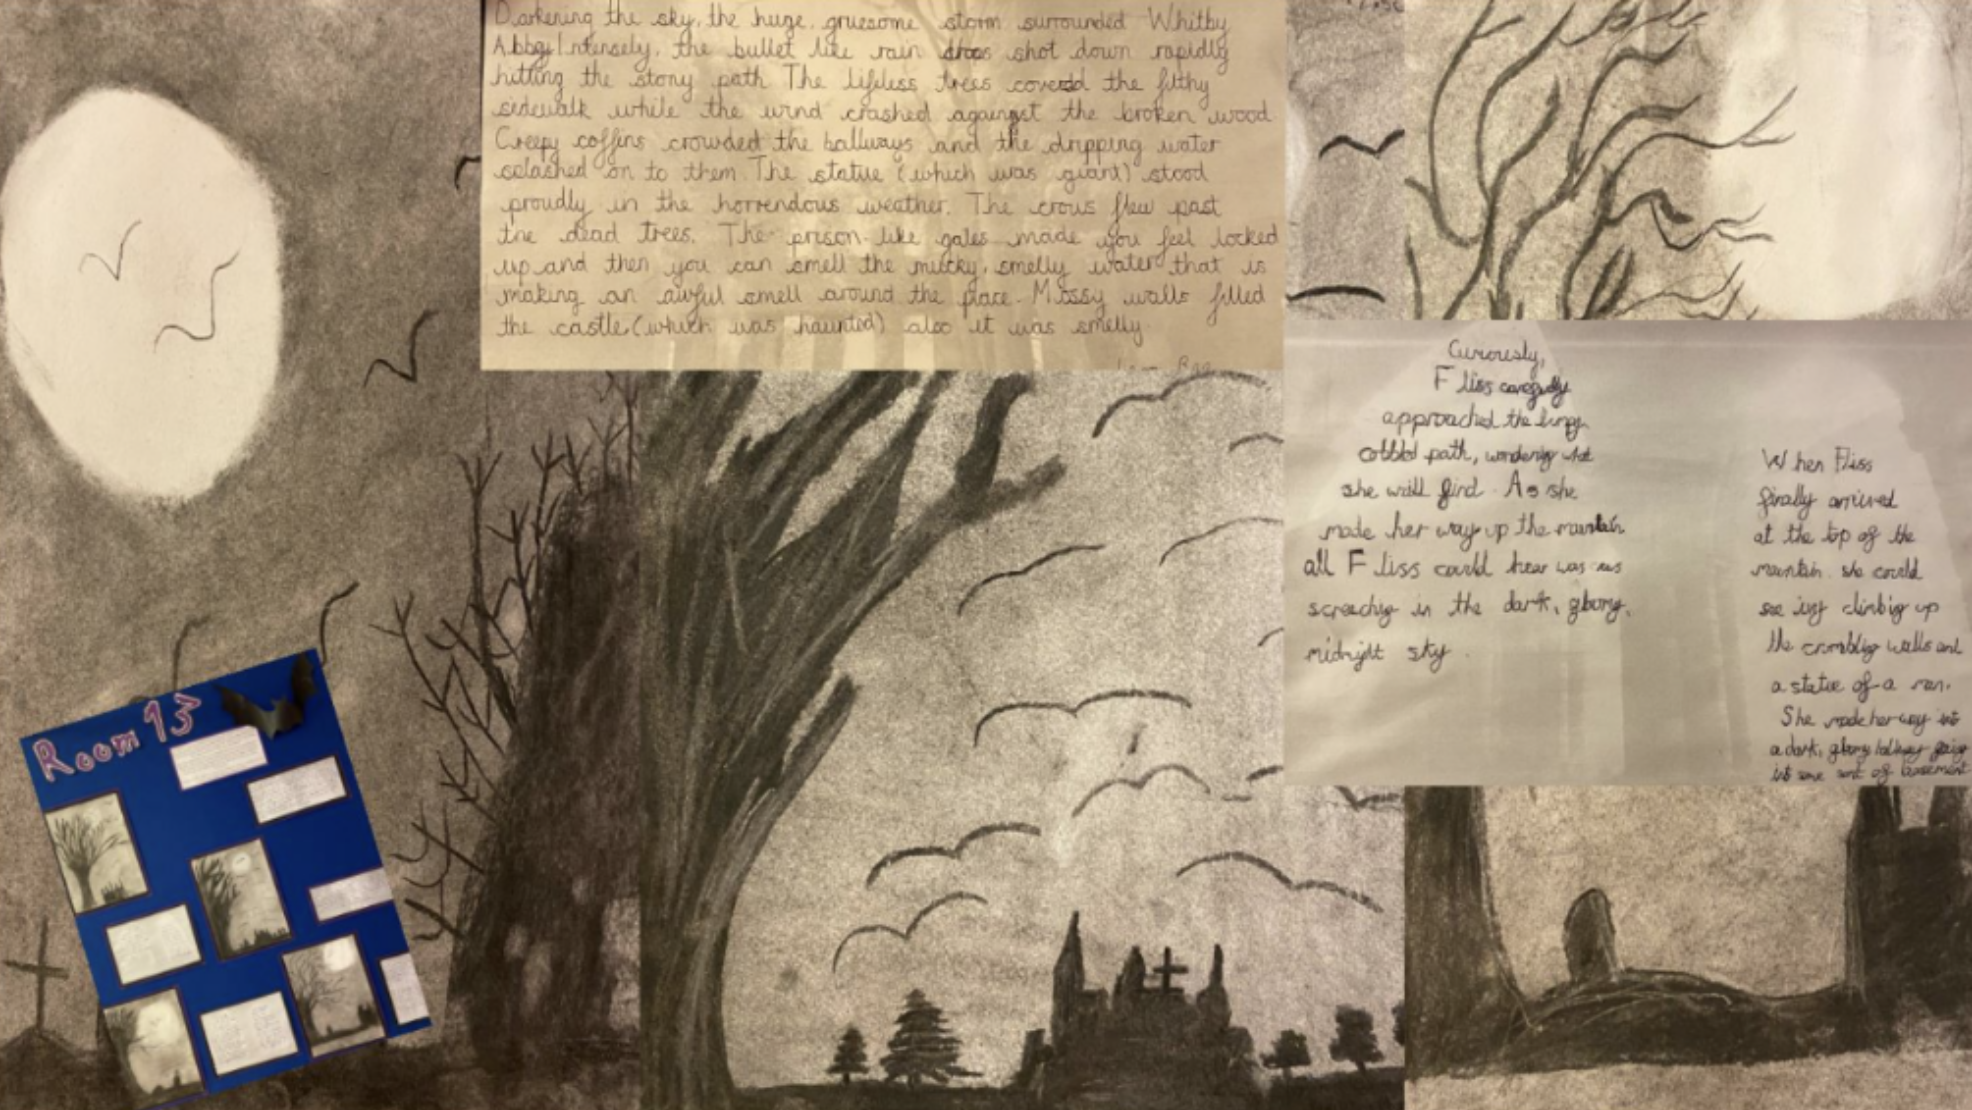 Darkening the sky, the huge, gruesome storm surrounded Whitby
Abbey. Intensely, the bullet like rain drops shot down rapidly
hitting the stony path. The lifeless trees covered the filthy
sidewalk while the wind crashed againgst the broken wood.
Creepy coffins crowded the hallways and the dripping water
splashed on to them. The statue (which was giant) stood
proudly in the horrendous weather. The crows flew past
the dead trees. The prison-like gales made you feel locked
up and then you can smell the mucky, smelly water that is
making an awful smell around the place. Mossy walls filled
the castle (which was haunted) also it was smelly.
Curiously,
Fliss carefully
approached the
path, wondering what
she will find. As she
made her way up the mountain
all Fliss could hear was
in the dark, gloomy,
midnight sky.
When Fliss
finally arrived
at the top of the
mountain she could
see ivy climbing up
the crumbling walls and
a statue of a man.
She made her way into
a dark, gloomy hallway going
into some sort of basement
Room 13